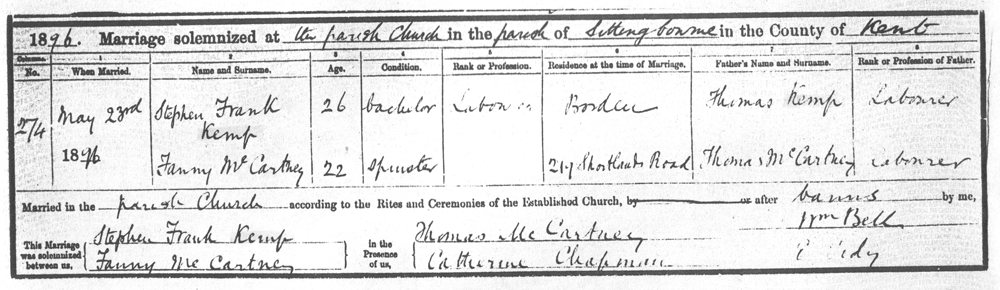 1896. Marriage solemnized at the parish Church in the parish of Sittingbourne in the County of Kent
Columns. 1 2 3 4 5 6 7 8
No. When Married. Name and Surname. Age. Condition. Rank or Profession. Residence at the time of Marriage. Father's Name and Surname. Rank or Profession of Father.
274 May 23rd Stephen Frank 26 bachelor Labourer Borden Thomas Kemp Labourer
Kemp
1896 Fanny McCartney 22 Spinster 217 Shortlands Road Thomas McCartney Labourer
Married in the parish Church according to the Rites and Ceremonies of the Established Church, by or after banns by me,
Wm Bell
This Marriage was solemnized between us, Stephen Frank Kemp In the Presence of us, Thomas McCartney
Fanny McCartney Catherine Chapman